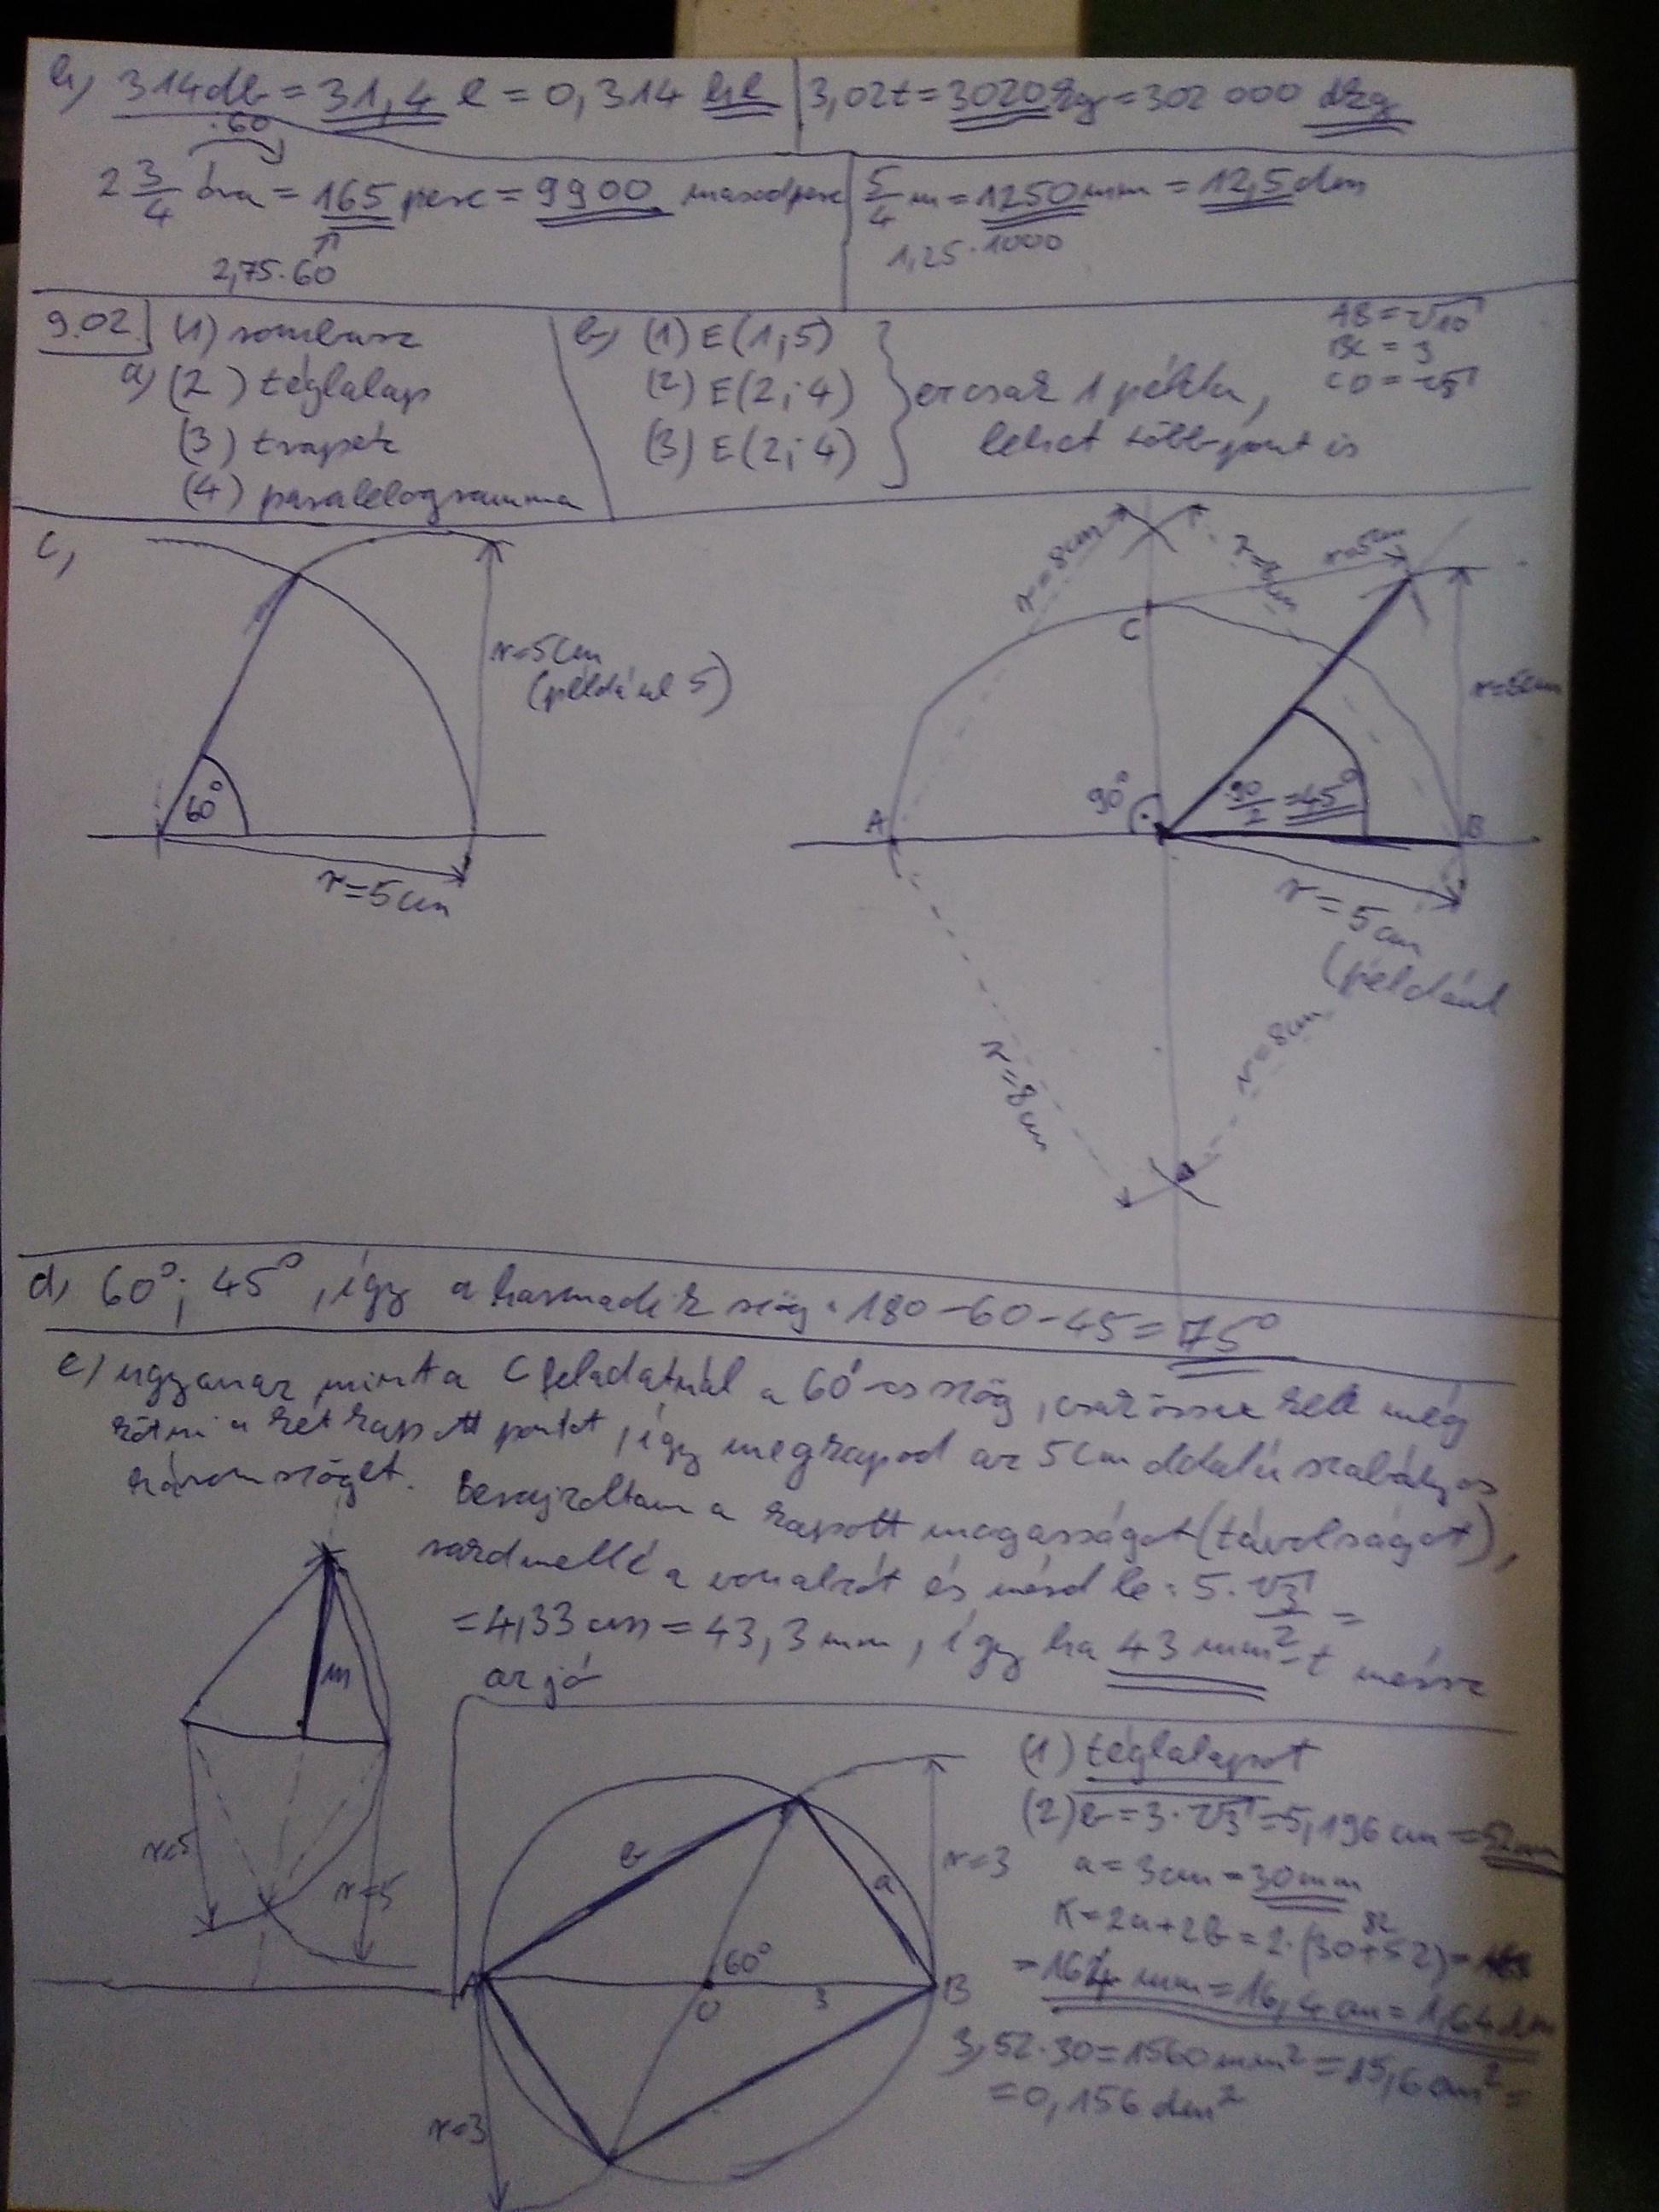 b) 314dl = 31,4 l = 0,314 hl
3,02t = 3020kg = 302 000 dkg
·60
2 3/4 óra = 165 perc = 9900 másodperc
2,75·60
5/4 m = 1250mm = 12,5dm
1,25·1000
9.02.
a) (1) rombusz
(2) téglalap
(3) trapéz
(4) paralelogramma
b) (1) E(1;5)
(2) E(2;4)
(3) E(2;4)
ez csak 1 példa,
lehet több pont is
AB = √10
BC = 3
CD = √5
c)
60°
r=5cm
(például 5)
r=5cm
r=8cm
r=8cm
r=5cm
C
r=5cm
90°
90/2 = 45°
A
B
r=5cm
(például
r=8cm
r=8cm
d) 60°; 45°, így a harmadik szög: 180-60-45= 75°
e) ugyanaz mint a C feladatnál a 60°-os szög, csak össze kell még
kötni a két kapott pontot, így megkapod az 5cm oldalú szabályos
háromszöget. Berajzoltam a kapott magasságot (távolságot),
rakd mellé a vonalzót és mérd le: 5·√3/2 =
=4,33 cm = 43,3 mm, így ha 43 mm-t mérsz
az jó
m
r=5
r=5
b
a
60°
A
O
3
B
r=3
r=3
(1) téglalapot
(2) b = 3·√3 = 5,196 cm = 52mm
a = 3cm = 30mm
K=2a+2b=2·(30+52)=
82
=164 mm = 16,4 cm = 1,64 dm
3, 52·30=1560mm² = 15,6cm² =
=0,156 dm²